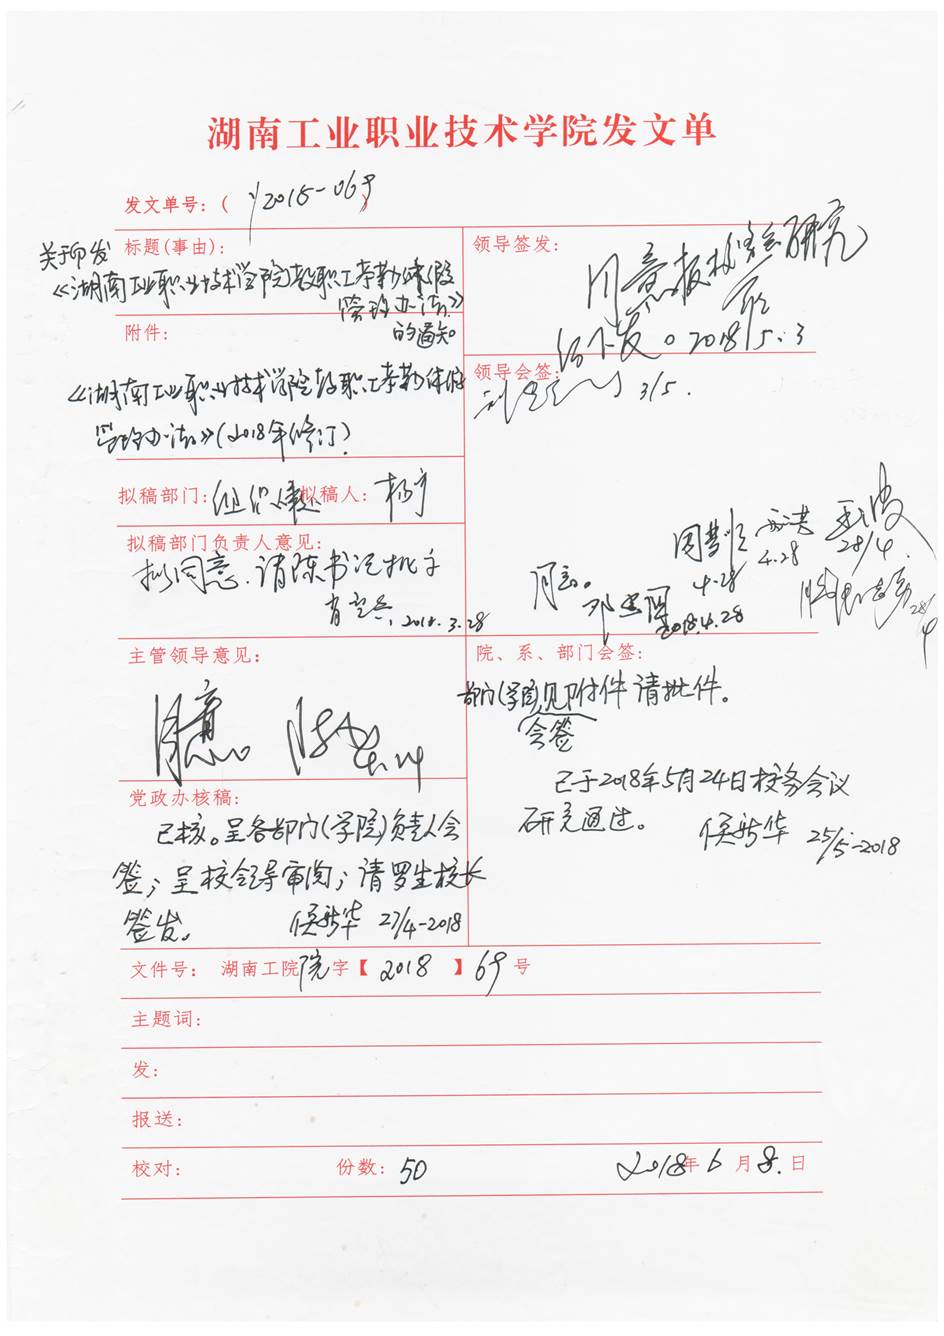 湖南工业职业技术学院发文单
发文单号：( y2018-069 )
标题(事由)：
关于印发
《湖南工业职业技术学院教职工考勤休假
管理办法》
的通知
附件：
《湖南工业职业技术学院教职工考勤休假
管理办法》(2018年修订)
拟稿部门：组织人事处 拟稿人：杨宇
拟稿部门负责人意见：
拟同意，请陈书记批示
2018.3.28
主管领导意见：
同意。
党政办核稿：
已核。呈各部门(学院)负责人会
签；呈校领导审阅；请罗生校长
签发。 侯新华 27/4-2018
领导签发：
同意报校务会研究
后下发。2018/5.3
领导会签：
3/5.
同意。
4.28
4.28
28/4.
2018.4.28
28/4
院、系、部门会签：
部门(学院)见附件请批件。
会签
已于2018年5月24日校务会议
研究通过。 侯新华 25/5-2018
文件号： 湖南工院院字【 2018 】69号
主题词：
发：
报送：
校对： 份数：50 2018年6月8日